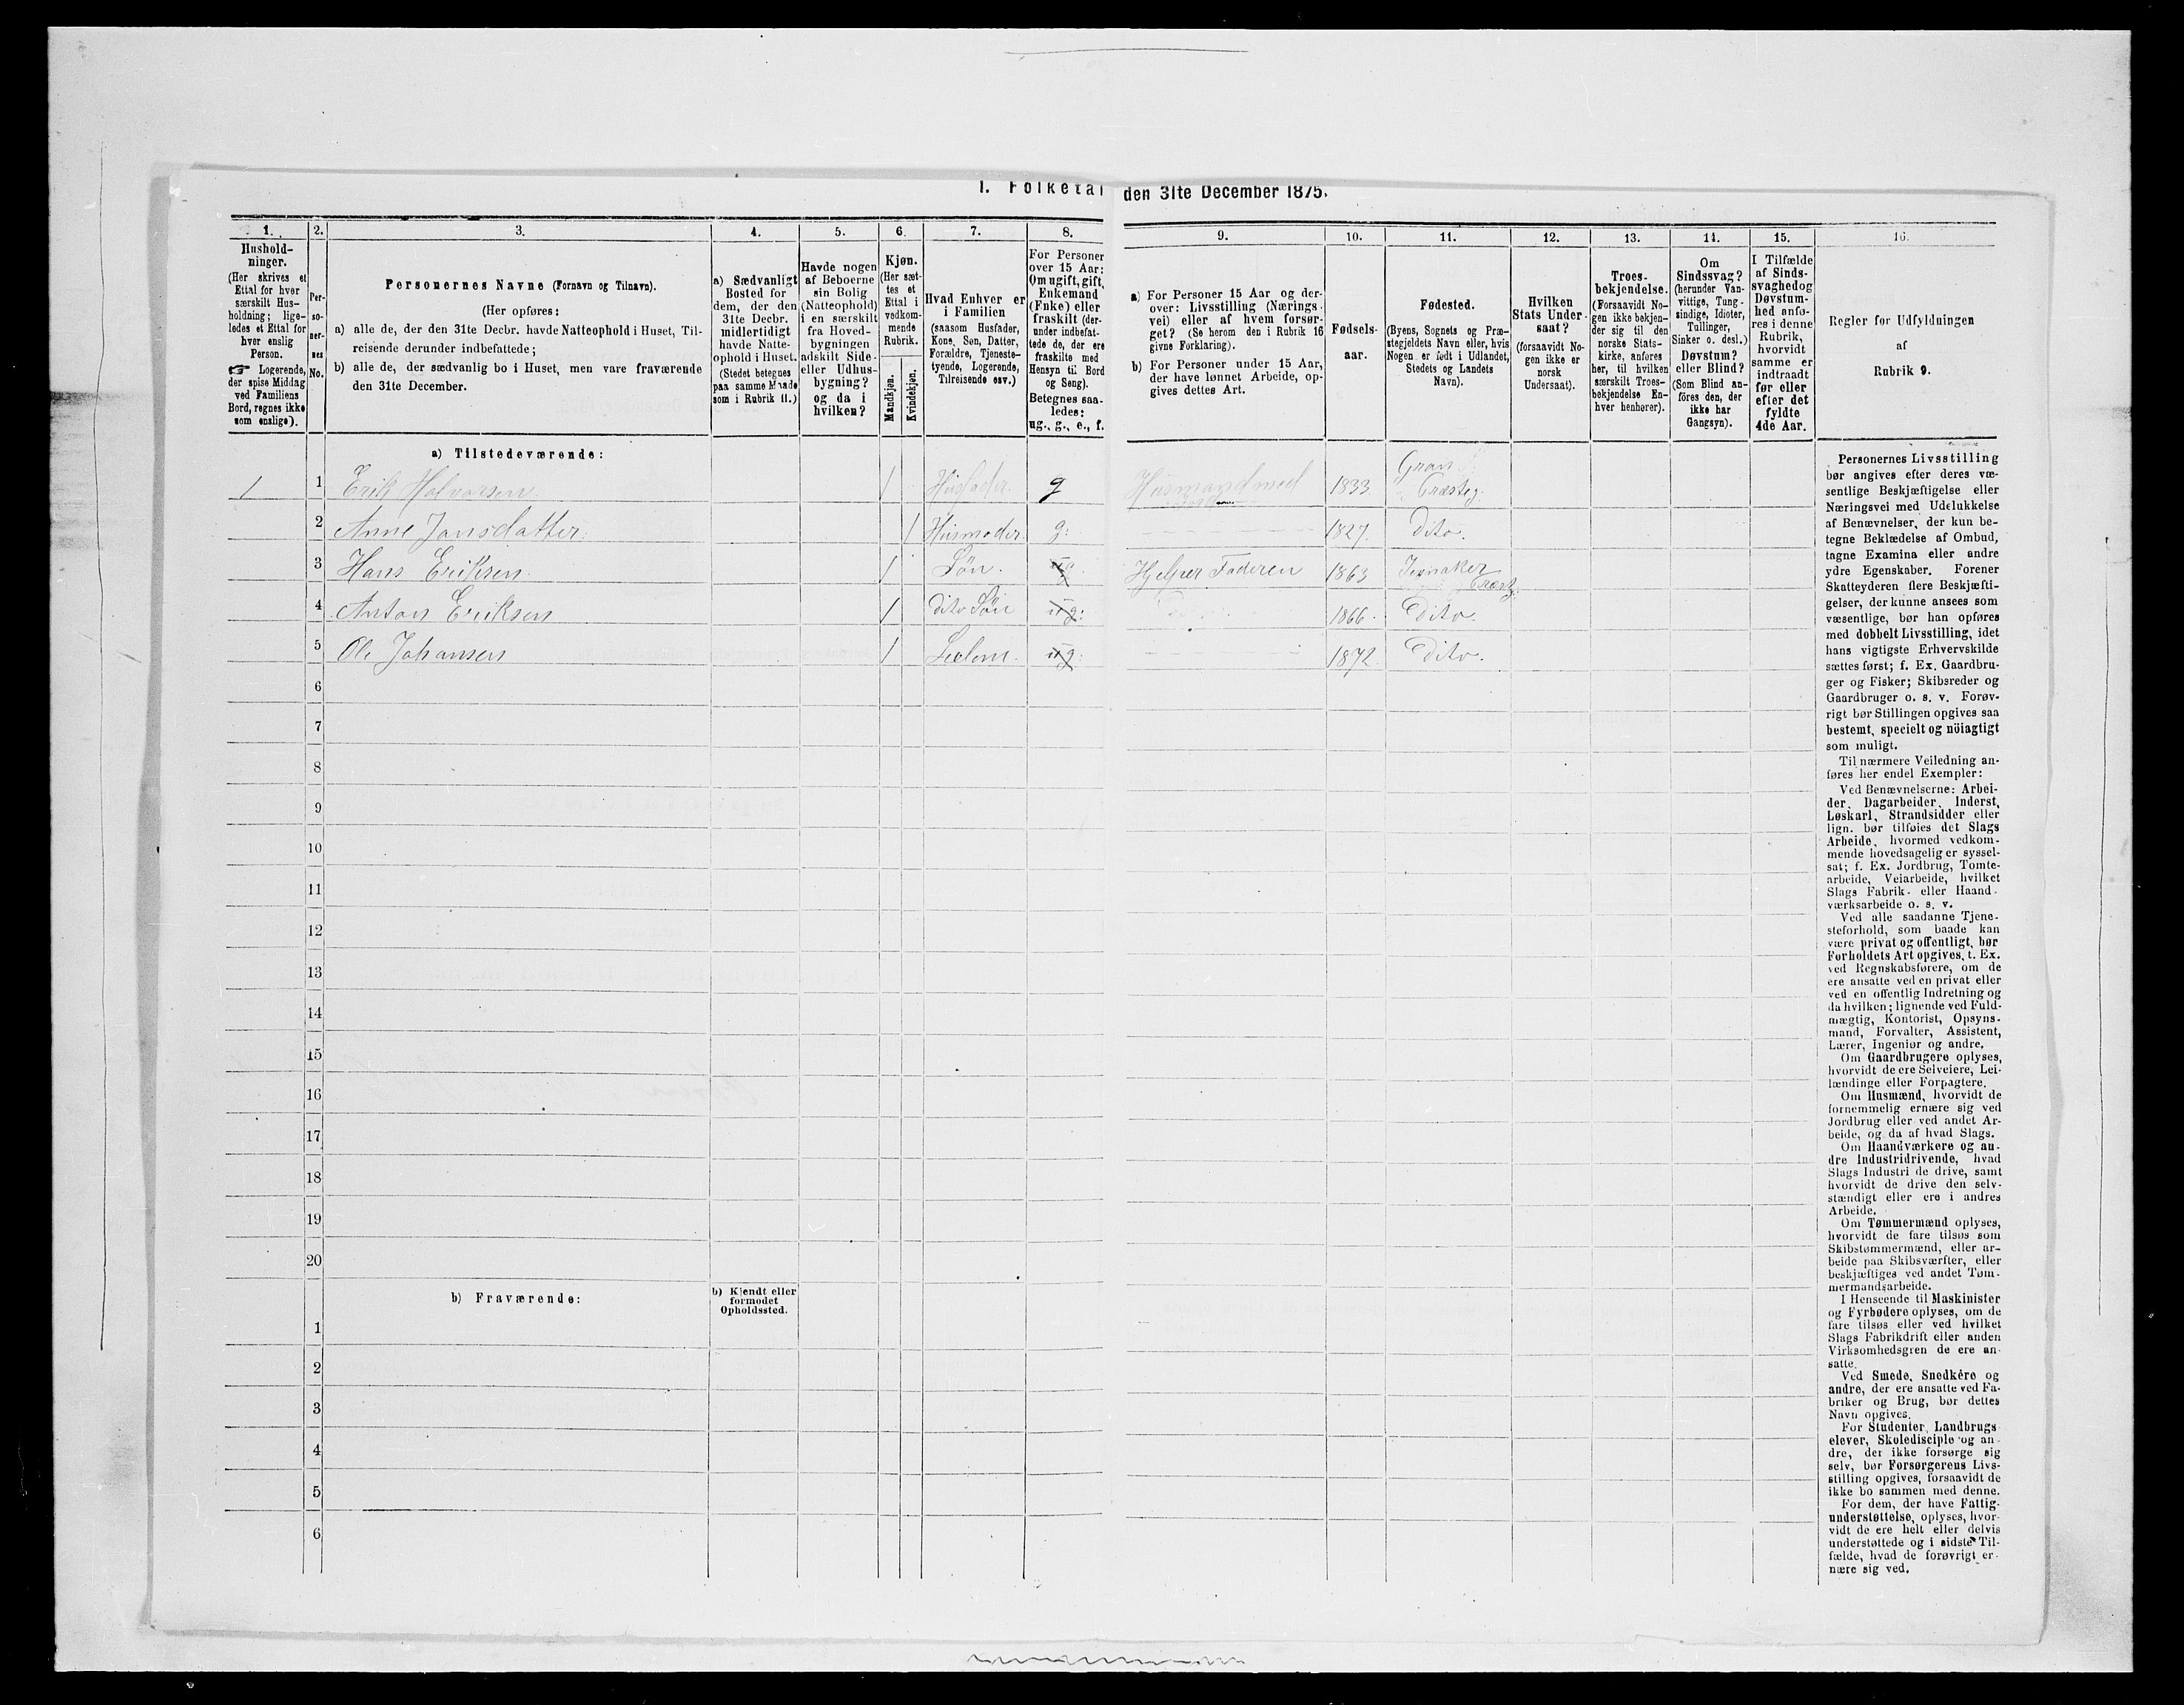 I. Folketal den 31te December 1875.
1.
Hushold-
ninger.
(Her skrives et
Ettal for hver
særskilt Hus-
holdning; lige-
ledes et Ettal for
hver enslig
Person.
☛ Logerende,
der spise Middag
ved Familiens
Bord, regnes ikke
som enslige).
2.
Per-
so-
ner-
nes
No.
3.
Personernes Navne (Fornavn og Tilnavn).
(Her opføres:
a) alle de, der den 31te Decbr. havde Natteophold i Huset, Til-
reisende derunder indbefattede;
b) alle de, der sædvanlig bo i Huset, men vare fraværende
den 31te December.
4.
a) Sædvanligt
Bosted for
dem, der den
31te Decbr.
midlertidigt
havde Natte-
ophold i Huset.
(Stedet betegnes
paa samme Maade
som i Rubrik 11.)
5.
Havde nogen
af Beboerne
sin Bolig
(Natteophold)
i en særskilt
fra Hoved-
bygningen
adskilt Side-
eller Udhus-
bygning?
og da i
hvilken?
6.
Kjøn.
(Her sæt-
tes et
Ettal i
vedkom-
mende
Rubrik.
Mandkjøn.
Kvindekjøn.
7.
Hvad Enhver er
i Familien
(saasom Husfader,
Kone, Søn, Datter,
Forældre, Tjeneste-
tyende, Logerende,
Tilreisende osv.)
8.
For Personer
over 15 Aar:
Om ugift, gift,
Enkemand
(Enke) eller
fraskilt (der-
under indbefat-
tede de, der ere
fraskilte med
Hensyn til Bord
og Seng).
Betegnes saa-
ledes:
ug., g., e., f.
9.
a) For Personer 15 Aar og der-
over: Livsstilling (Nærings-
vei) eller af hvem forsør-
get? (Se herom den i Rubrik 16
givne Forklaring).
b) For Personer under 15 Aar,
der have lønnet Arbeide, op-
gives dettes Art.
10.
Fødsels-
aar.
11.
Fødested.
(Byens, Sognets og Præ-
stegjeldets Navn eller, hvis
Nogen er født i Udlandet,
Stedets og Landets
Navn).
12.
Hvilken
Stats Under-
saat?
(forsaavidt No-
gen ikke er
norsk
Undersaat).
13.
Troes-
bekjendelse.
(Forsaavidt No-
gen ikke bekjen-
der sig til den
norske Stats-
kirke, anføres
her, til hvilken
særskilt Troes-
bekjendelse En-
hver henhører).
14.
Om
Sindssvag?
(herunder Van-
vittige, Tung-
sindige, Idioter,
Tullinger,
Sinker o. desl.)
Døvstum?
eller Blind?
(Som Blind an-
føres den, der
ikke har
Gangsyn).
15.
I Tilfælde
af Sinds-
svaghed og
Døvstum-
hed anfø-
res i denne
Rubrik,
hvorvidt
samme er
indtraadt
før eller
efter det
fyldte
4de Aar.
16.
Regler for Udfyldningen
af
Rubrik 9.
a) Tilstedeværende:
1 1 Erik Halvorsen 1 Husfader. g Husmand med Jord 1833 Gran Præsteg.
2 Anne Jansdatter 1 Husmoder g: 1827. Dito.
3 Hans Eriksen 1 Søn. ug. Hjelper Faderen 1863 Jevnaker Præstg.
4 Anton Eriksen 1 dito Søn ug: 1866. Dito.
5 Ole Johansen 1 ug: 1872. Dito.
6
7
8
9
10
11
12
13
14
15
16
17
18
19
20
b) Fraværende:
b) Kjendt eller
formodet
Opholdssted.
1
2
3
4
5
6
Personernes Livsstilling
bør angives efter deres væ-
sentlige Beskjæftigelse eller
Næringsvei med Udelukkelse
af Benævnelser, der kun be-
tegne Beklædelse af Ombud,
tagne Examina eller andre
ydre Egenskaber. Forener
Skatteyderen flere Beskjæfti-
gelser, der kunne ansees som
væsentlige, bør han opføres
med dobbelt Livsstilling, idet
hans vigtigste Erhvervskilde
sættes først; f. Ex. Gaardbru-
ger og Fisker; Skibsreder og
Gaardbruger o. s. v. Forøv-
rigt bør Stillingen opgives saa
bestemt, specielt og nöiagtigt
som muligt.
Til nærmere Veiledning an-
føres her endel Exempler:
Ved Benævnelserne: Arbei-
der, Dagarbeider, Inderst,
Løskarl, Strandsidder eller
lign. bør tilføies det Slags
Arbeide, hvormed vedkom-
mende hovedsagelig er syssel-
sat; f. Ex. Jordbrug, Tomte-
arbeide, Veiarbeide, hvilket
Slags Fabrik- eller Haand-
værksarbeide o. s. v.
Ved alle saadanne Tjene-
steforhold, som baade kan
være privat og offentligt, bør
Forholdets Art opgives, t. Ex.
ved Regnskabsførere, om de
ere ansatte ved en privat eller
ved en offentlig Indretning og
da hvilken; lignende ved Fuld-
mægtig, Kontorist, Opsyns-
mand, Forvalter, Assistent,
Lærer, Ingeniør og andre.
Om Gaardbrugere oplyses,
hvorvidt de ere Selveiere, Lei-
lændinge eller Forpagtere.
Om Husmænd, hvorvidt de
fornemmelig ernære sig ved
Jordbrug eller ved andet Ar-
beide, og da af hvad Slags.
Om Haandværkere og an-
dre Industridrivende, hvad
Slags Industri de drive, samt
hvorvidt de drive den selv-
stændigt eller ere i andres
Arbeide.
Om Tømmermænd oplyses,
hvorvidt de fare tilsøs som
Skibstømmermænd, eller ar-
beide paa Skibsværfter, eller
beskjæftiges ved andet Tøm-
mermandsarbeide.
I Henseende til Maskinister
og Fyrbødere oplyses, om de
fare tilsøs eller ved hvilket
Slags Fabrikdrift eller anden
Virksomhedsgren de ere an-
satte.
Ved Smede, Snedkere og
andre, der ere ansatte ved Fa-
briker og Brug, bør dettes
Navn opgives.
For Studenter, Landbrugs-
elever, Skoledisciple og an-
dre, der ikke forsørge sig
selv, bør Forsørgerens Livs-
stilling opgives, forsaavidt de
ikke bo sammen med denne.
For dem, der have Fattig-
understøttelse, oplyses, hvor-
vidt de ere helt eller delvis
understøttede og i sidste Til-
fælde, hvad de forøvrigt er-
nære sig ved.